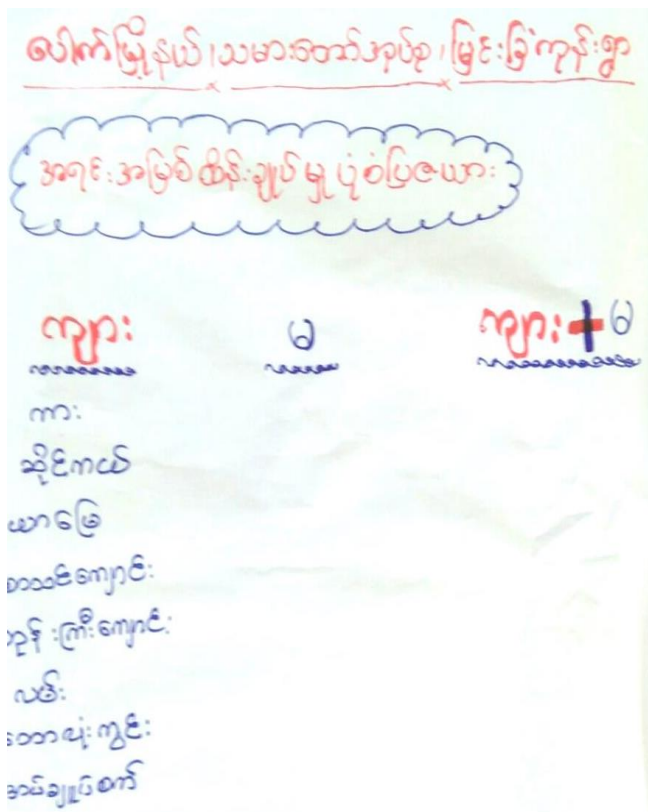 ပေါက်မြို့နယ်၊သမားတော်အုပ်စု၊မြင်းခြံကုန်းရွာ
အရင်းအမြစ်ထိန်းချုပ်မှုပုံစံပြဇယား
ကျား မ ကျား+မ
ကား
ဆိုင်ကယ်
ယာမြေ
စာသင်ကျောင်း
ဘုန်းကြီးကျောင်း
လမ်း
ဘောလုံးကွင်း
အပ်ချုပ်စက်